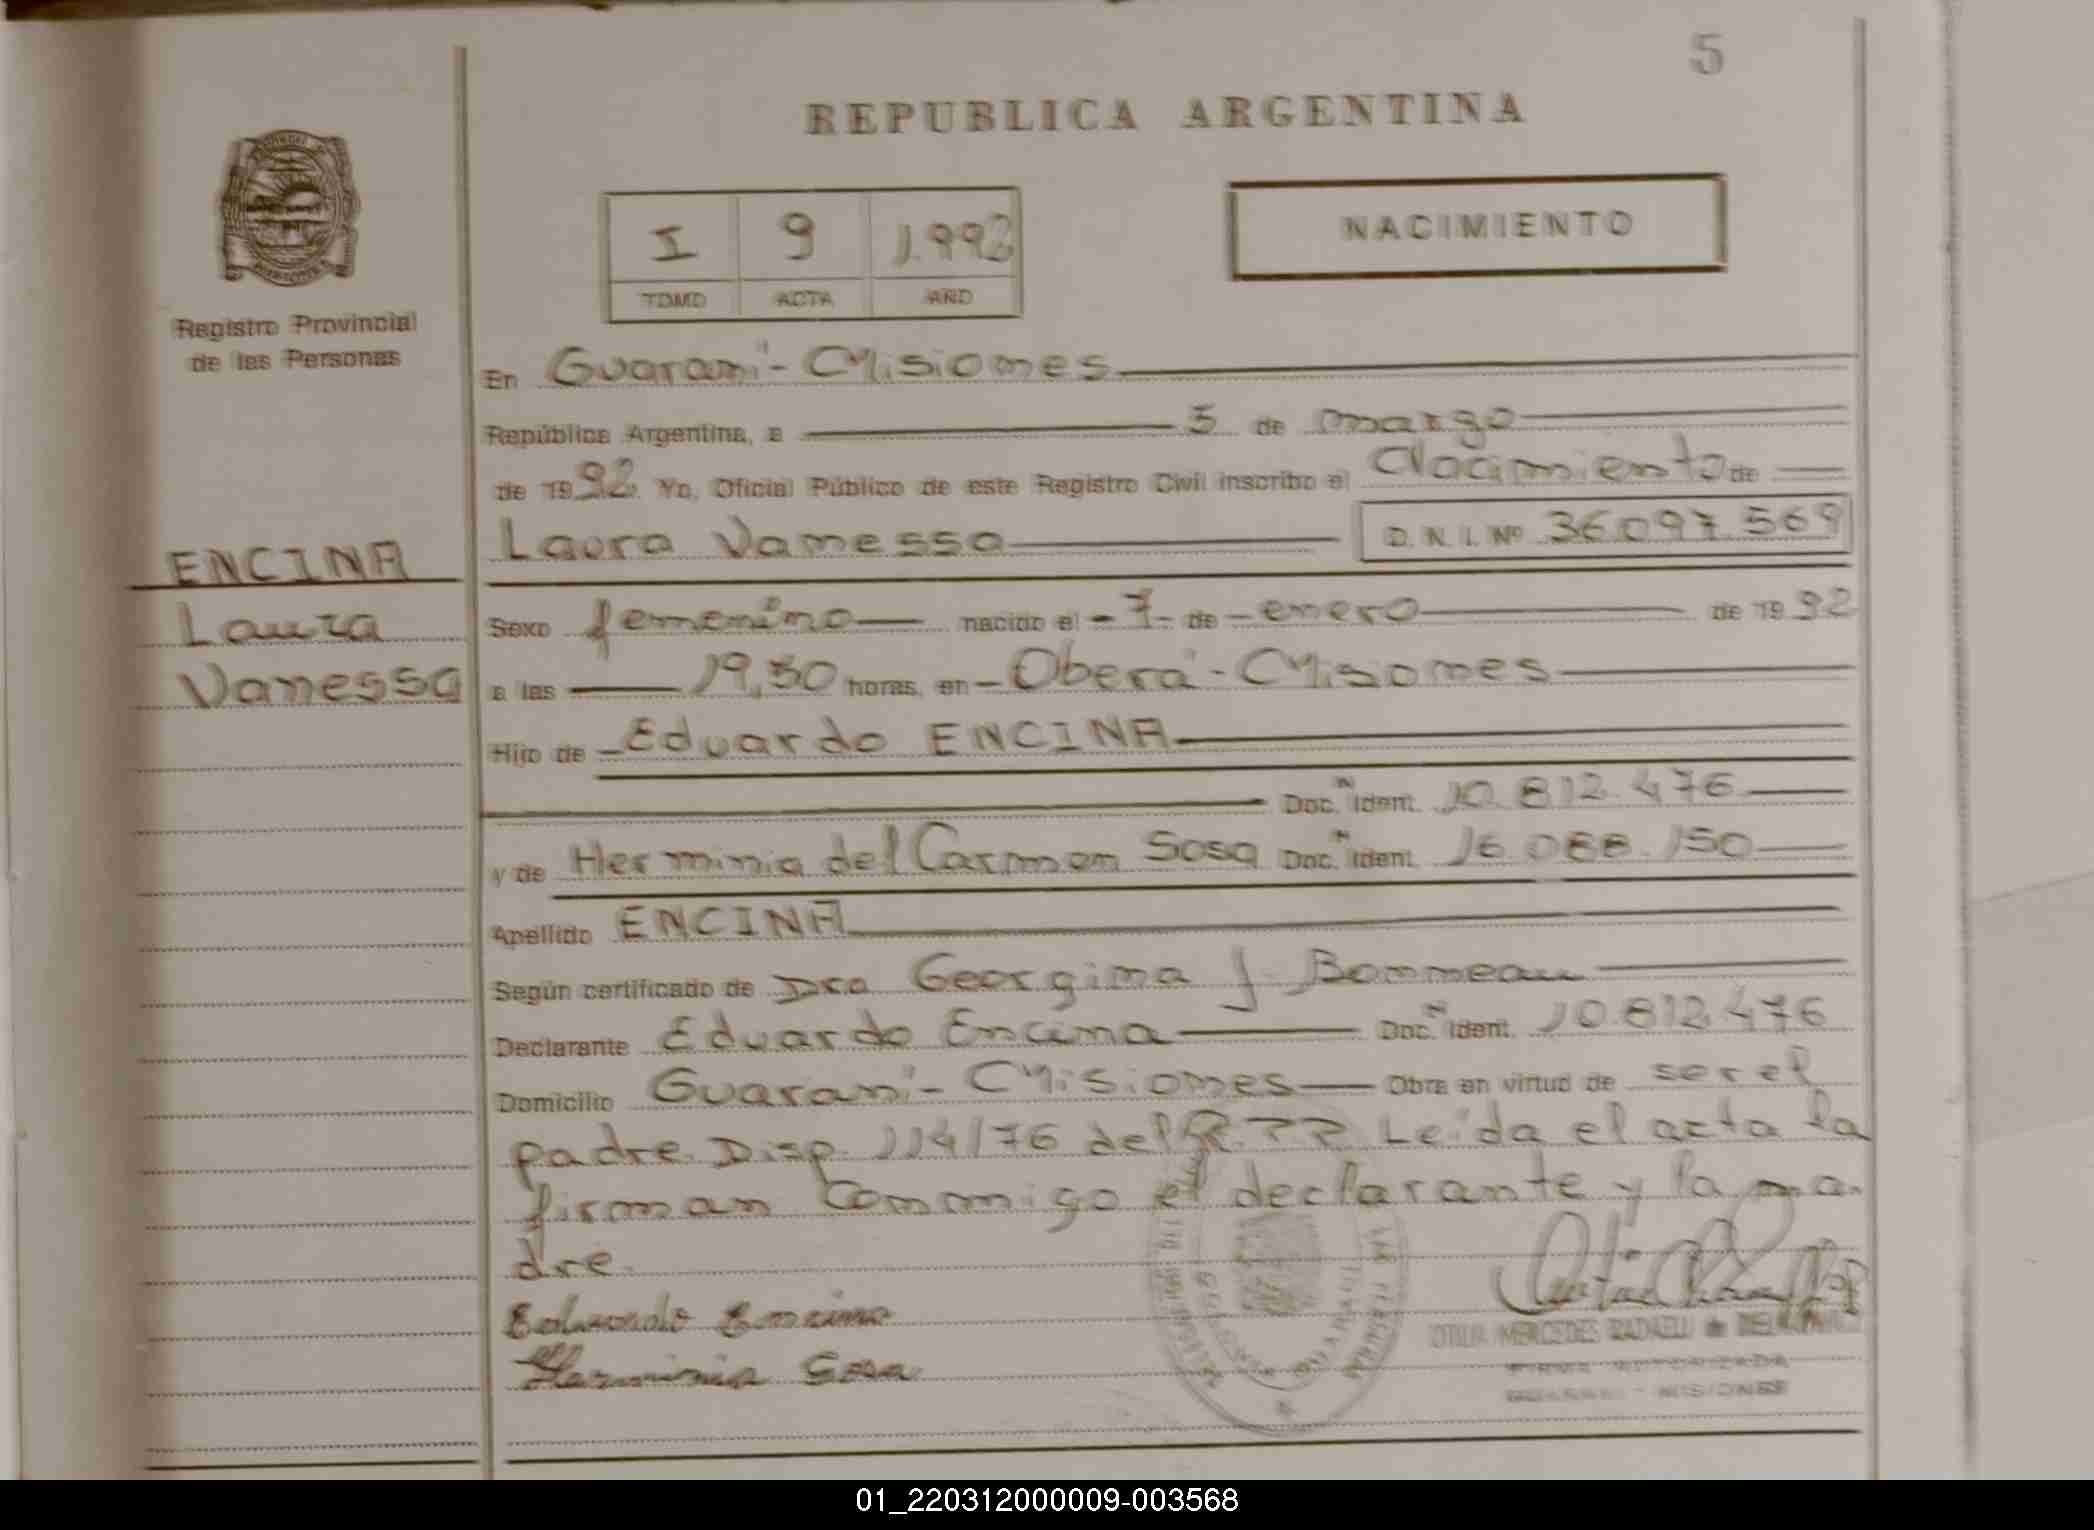 5
REPUBLICA ARGENTINA
I 9 1.992
TOMO ACTA AÑO
NACIMIENTO
Registro Provincial
de las Personas
En Guaraní - Misiones
República Argentina, a 5 de marzo
de 1992. Yo, Oficial Público de este Registro Civil inscribo el Nacimiento de
Laura Vanessa D. N. I. Nº 36.097.569
ENCINA
Laura
Vanessa
Sexo femenino nacido el - 7 - de - enero de 1992
a las 19,30 horas, en - Oberá - Misiones
Hijo de - Eduardo ENCINA
Doc. Ident. 10.812.476
y de Herminia del Carmen Sosa Doc. Ident. 16.088.150
Apellido ENCINA
Según certificado de Dra Georgina J. Bonneau
Declarante Eduardo Encina Doc. Ident. 10.812.476
Domicilio Guaraní - Misiones Obra en virtud de ser el
padre. Disp. 114/76 del R.P.P. Leída el acta la
firman conmigo el declarante y la ma-
dre.
Eduardo Encina
Herminia Sosa
MERCEDES
FIRMA AUTORIZADA
GUARANI - MISIONES
01_220312000009-003568